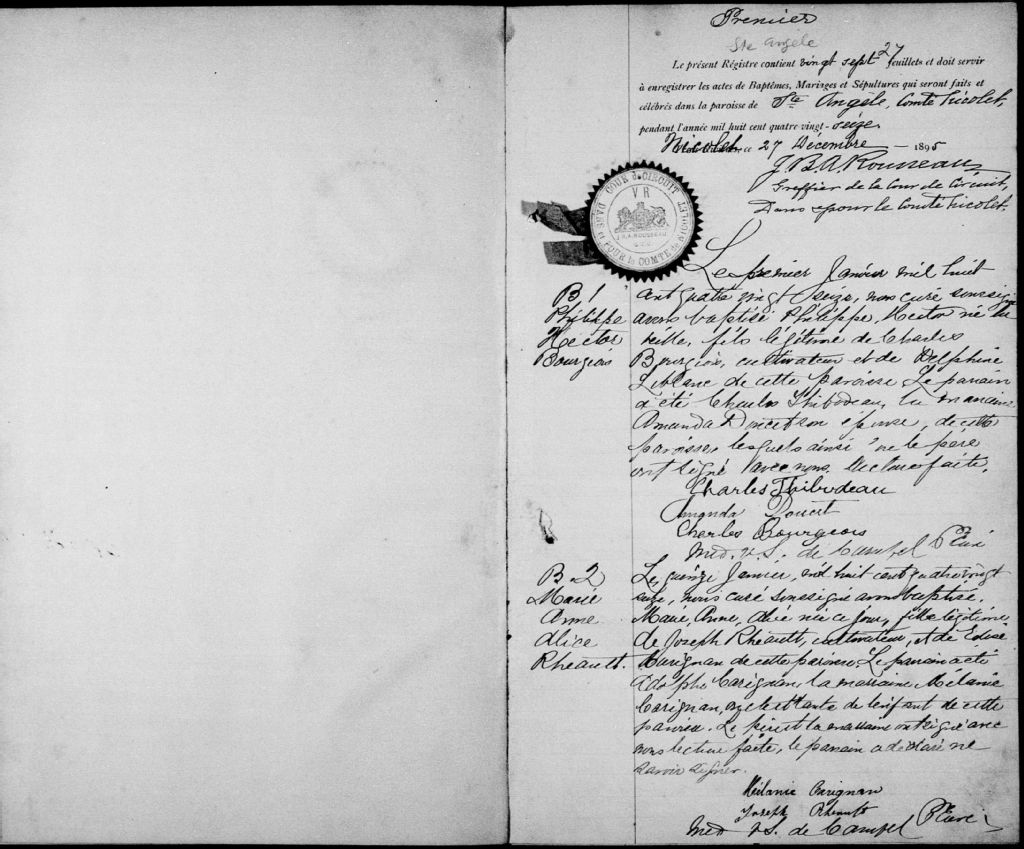 Premier
Ste Angèle
Le présent Régistre contient vingt sept 27 feuillets et doit servir
à enregistrer les actes de Baptêmes, Mariages et Sépultures qui seront faits et
célébrés dans la paroisse de Ste Angèle, Comté Nicolet,
pendant l'année mil huit cent quatre vingt-seize
Nicolet, ce 27 Décembre 1895
J. B. A. Rousseau
Greffier de la Cour de Circuit,
Dans & pour le Comté Nicolet.
COUR DE CIRCUIT
DANS ET POUR le COMTÉ de NICOLET
V R
J.B.A. ROUSSEAU
G.C.C.
B 1
Philippe
Hector
Bourgeois
Le premier Janvier mil huit
cent quatre vingt seize, nous curé soussigné
avons baptisé Philippe, Hector né la
veille, fils légitime de Charles
Bourgeois, cultivateur et de Delphine
Leblanc de cette paroisse. Le parrain
a été Charles Thibodeau, la marraine
Amanda Doucet son épouse, de cette
paroisse lesquels ainsi que le père
ont signé avec nous. Lecture faite.
Charles Thibodeau
Amanda Doucet
Charles Bourgeois
de Ptre Curé
B-2
Marie
Anne
Alice
Rheault.
Le quinze Janvier, mil huit cent quatre vingt
seize, nous curé soussigné avons baptisé
Marie, Anne, Alice née ce jour, fille légitime
de Joseph Rheault, cultivateur, et de
Carignan de cette paroisse. Le parrain a été
Adolphe Carignan, la marraine Mélanie
Carignan, oncle et tante de l'enfant de cette
paroisse. Le père et la marraine ont signé avec
nous lecture faite, le parrain a déclaré ne
savoir signer.
Mélanie Carignan
Joseph Rheault
de Ptre Curé